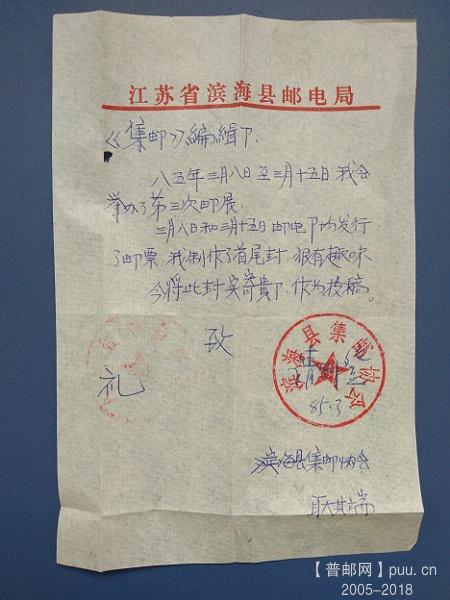 江苏省滨海县邮电局
《集邮》编缉卩.
八五年三月八日至三月十五日我会
举办了第三次邮展.
三月八日和三月十五日邮电卩均发行
了邮票,我制作了首尾封.狠有趣味
今将此封实寄贵卩.作为投稿。
致
礼
滨海县集邮协会
85.3
滨海县集邮协会
耿其端
【普邮网】puu.cn
2005-2018